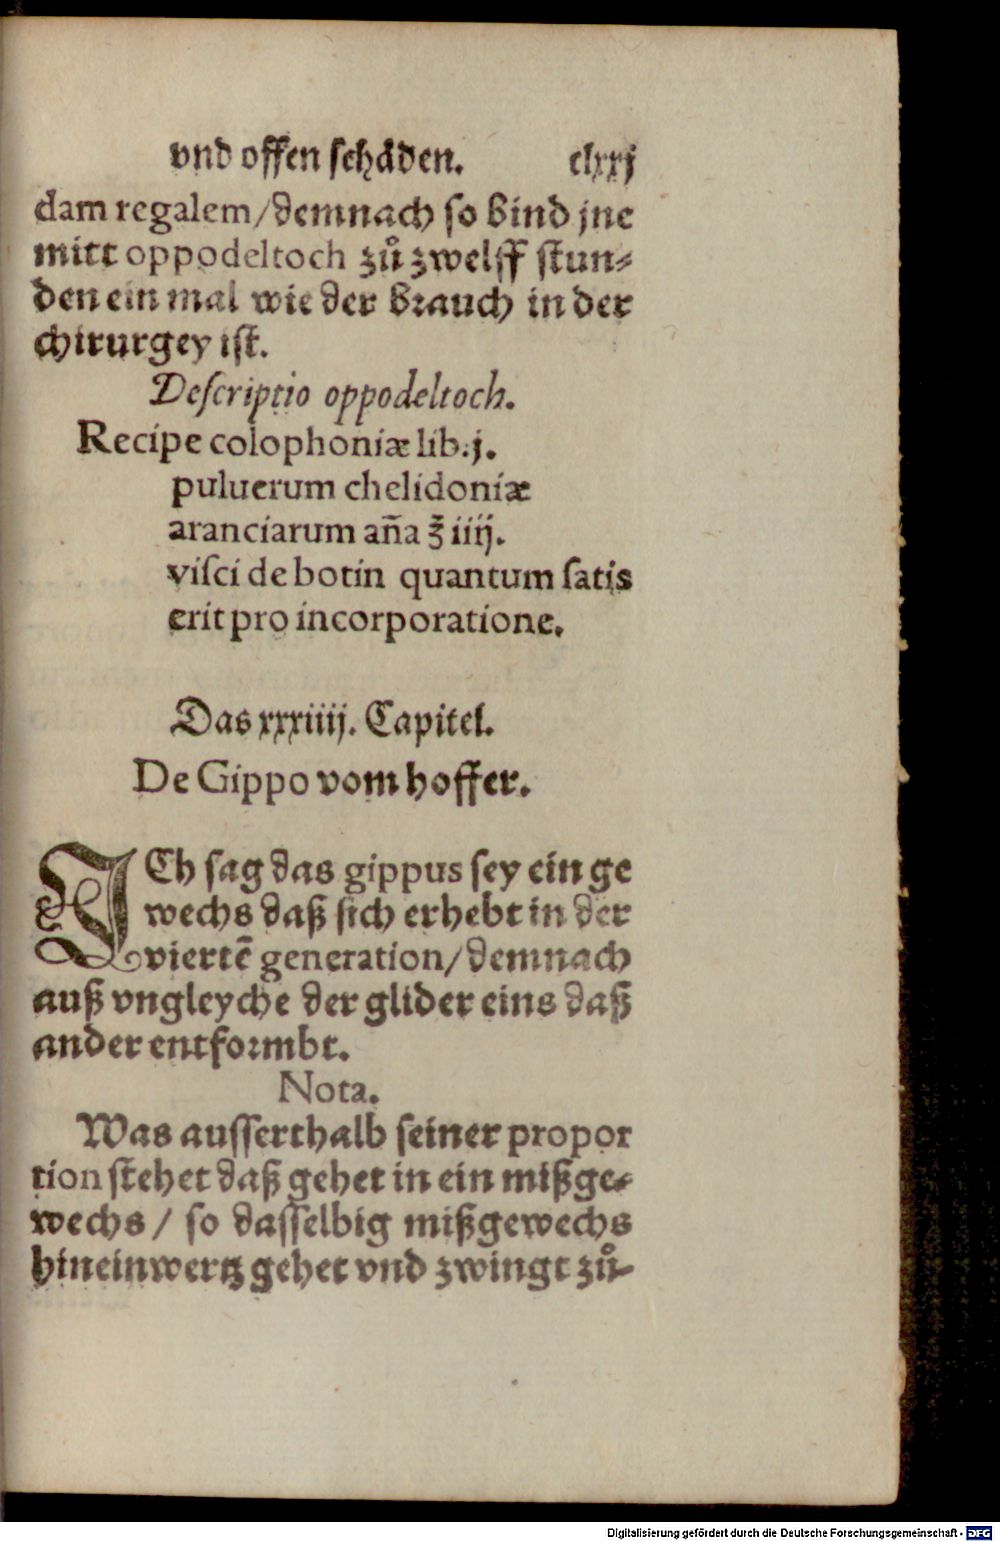 vnd offen schäden. clxxj
dam regalem/demnach so bind jne
mitt oppodeltoch zů zwelff stun⸗
den ein mal wie der brauch in der
chirurgey ist.
Descriptio oppodeltoch.
Recipe colophoniæ lib.j.
puluerum chelidoniæ
aranciarum an̄a ℥ iiij.
visci de botin quantum satis
erit pro incorporatione.
Das xxxiiij. Capitel.
De Gippo vom hoffer.
ICh sag das gippus sey ein ge
wechs daß sich erhebt in der
viertē generation/demnach
auß vngleyche der glider eins daß
ander entformbt.
Nota.
Was ausserthalb seiner propor
tion stehet daß gehet in ein mißge⸗
wechs/ so dasselbig mißgewechs
hineinwertz gehet vnd zwingt zů⸗
Digitalisierung gefördert durch die Deutsche Forschungsgemeinschaft - DFG